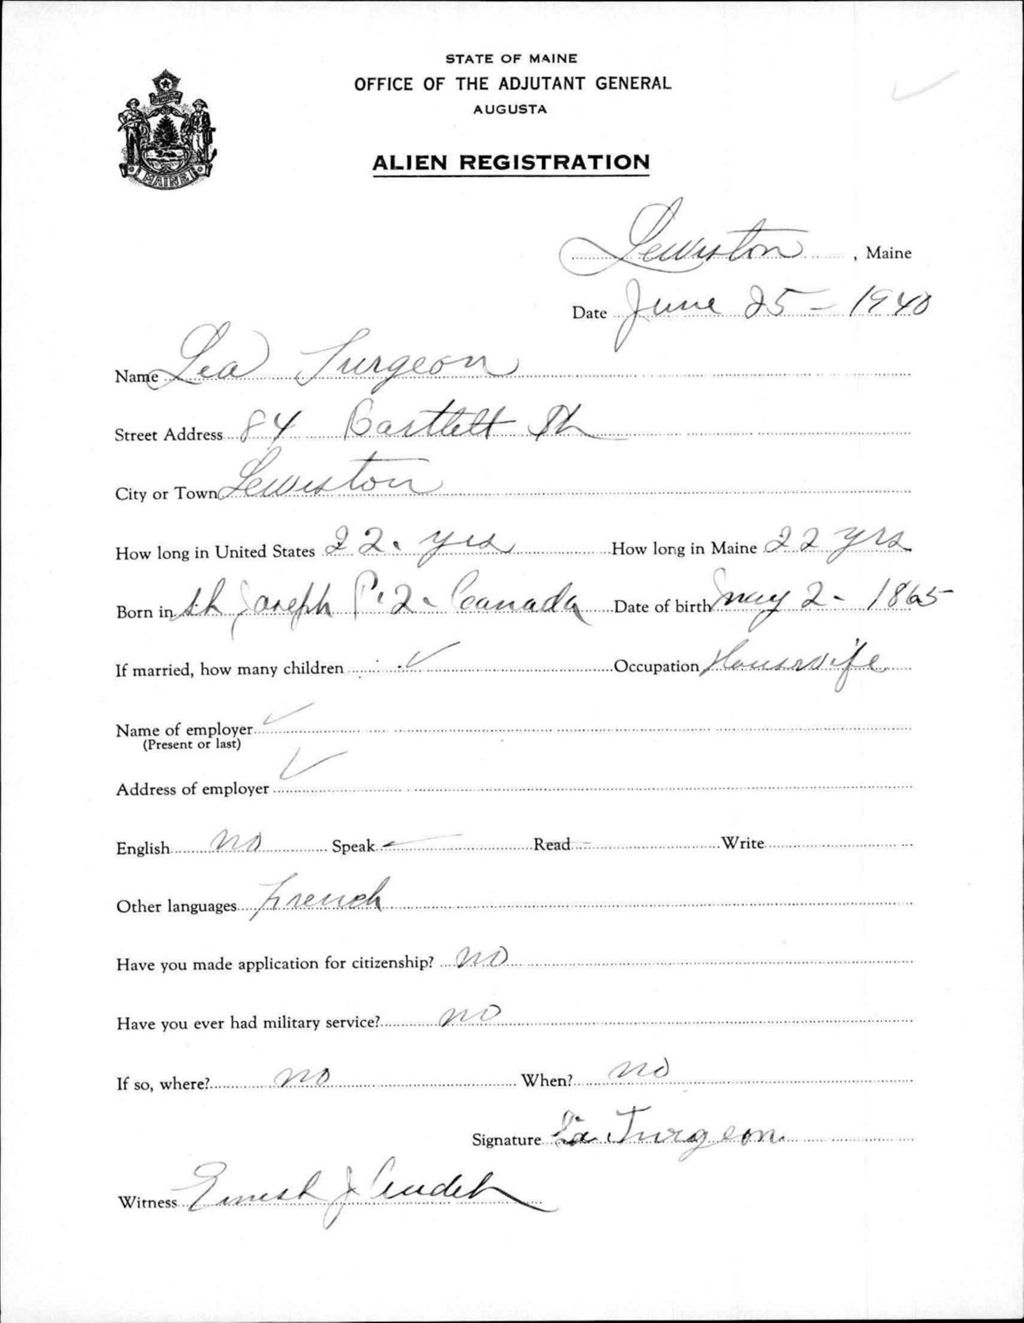 STATE OF MAINE
OFFICE OF THE ADJUTANT GENERAL
AUGUSTA
MAINE
ALIEN REGISTRATION
Lewiston, Maine
Date June 25 - 1940
Name Lea Turgeon
Street Address 84 Bartlett St
City or Town Lewiston
How long in United States 22. yrs How long in Maine 22 yrs
Born in St Joseph P.Q. Canada Date of birth May 2 - 1865
If married, how many children ✓ Occupation Housewife
Name of employer ✓
(Present or last)
Address of employer ✓
English no Speak - Read - Write
Other languages French
Have you made application for citizenship? no
Have you ever had military service? no
If so, where? no When? no
Signature Lea Turgeon
Witness Ernest J